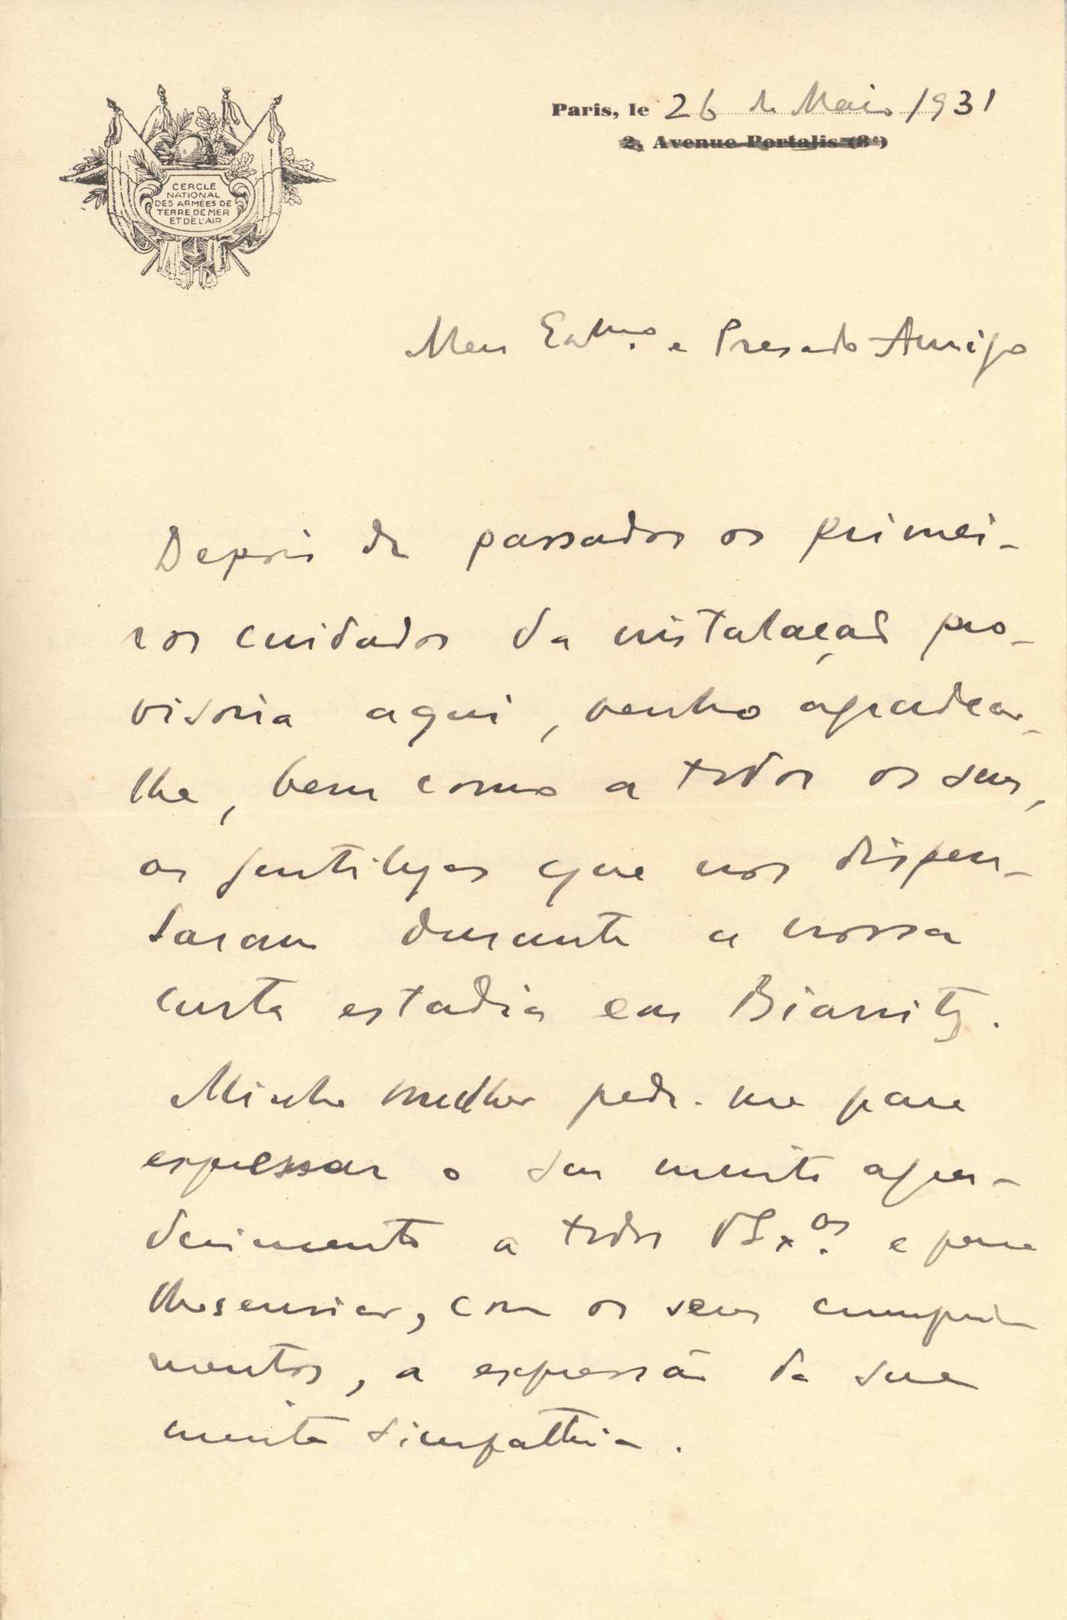 CERCLE
NATIONAL
DES ARMÉES DE
TERRE DE MER
ET DE L'AIR
Paris, le 26 de Maio 1931
2, Avenue Portalis (8e)
Meu Exmo. e Presado Amigo
Depois de passados os primei-
ros cuidados da instalação pro-
visoria aqui, venho agradecer-
lhe, bem como a todos os seus,
as gentilezas que nos dispen-
saram durante a nossa
curta estadia em Biarritz.
Minha mulher pede-me para
expressar o seu muito agra-
decimento a todos VExas. e para
lhes enviar, com os seus cumpri-
mentos, a expressão da sua
muita simpathia.